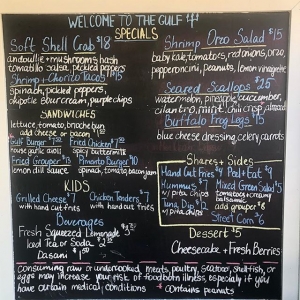 WELCOME TO THE GULF!
SPECIALS
Soft Shell Crab $18
andouille + mushroom hash
tomatillo salsa, pickled peppers
Shrimp + Chorizo Tacos $15
spinach, pickled peppers,
chipotle sour cream, purple chips
SANDWICHES
lettuce, tomato, brioche bun
add cheese or bacon
Gulf Burger
Fried Chicken
house aioli
spicy buttermilk
Fried Grouper $13
Pimento Burger $10
lemon dill sauce
spinach, tomato, bacon jam
KIDS
Grilled Cheese $7
with hand cut fries
Chicken Tenders
with hand cut fries
Beverages
Fresh Squeezed Lemonade
Iced Tea or Soda
Dasani
Shrimp Orzo Salad $15
baby kale, tomatoes, red onion, orzo,
pepperoncini, peanuts, lemon vinaigrette
Seared Scallops $25
watermelon, pineapple, cucumber,
cilantro, mint, chili crisp, almond
Buffalo Frog Legs $15
blue cheese dressing, celery, carrots
Shares + Sides
Hand Cut Fries $4
Peel + Eat
Hummus
w/ pita chips
Mixed Green Salad
tomatoes, creamy
balsamic
Tuna Dip
w/ pita chips
add grouper $8
Street Corn $6
Dessert $5
Cheesecake + Fresh Berries
consuming raw or undercooked meats, poultry, seafood, shellfish, or
eggs may increase your risk of foodborn illness, especially if you
have certain medical conditions * contains peanuts